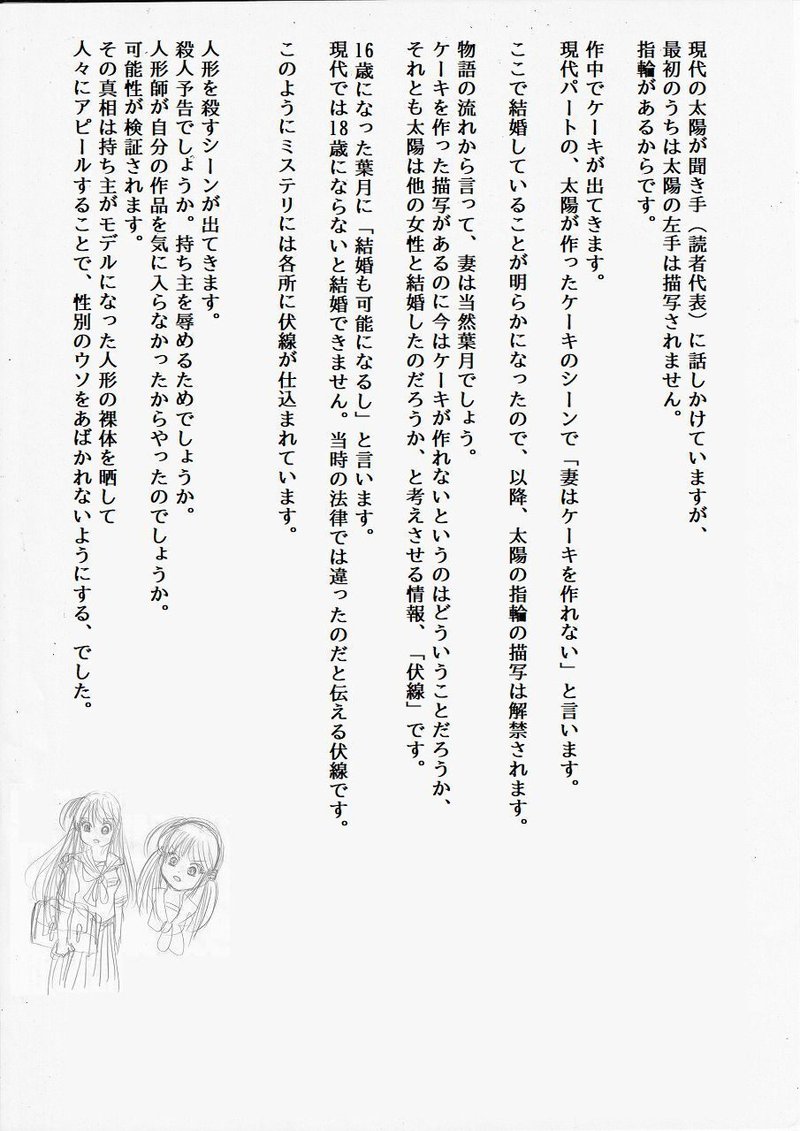 現代の太陽が聞き手（読者代表）に話しかけていますが、
最初のうちは太陽の左手は描写されません。
指輪があるからです。
作中でケーキが出てきます。
現代パートの、太陽が作ったケーキのシーンで「妻はケーキを作れない」と言います。
ここで結婚していることが明らかになったので、以降、太陽の指輪の描写は解禁されます。
物語の流れから言って、妻は当然葉月でしょう。
ケーキを作った描写があるのに今はケーキが作れないというのはどういうことだろうか、
それとも太陽は他の女性と結婚したのだろうか、と考えさせる情報、「伏線」です。
16歳になった葉月に「結婚も可能になるし」と言います。
現代では18歳にならないと結婚できません。当時の法律では違ったのだと伝える伏線です。
このようにミステリには各所に伏線が仕込まれています。
人形を殺すシーンが出てきます。
殺人予告でしょうか。持ち主を辱めるためでしょうか。
人形師が自分の作品を気に入らなかったからやったのでしょうか。
可能性が検証されます。
その真相は持ち主がモデルになった人形の裸体を晒して
人々にアピールすることで、性別のウソをあばかれないようにする、でした。